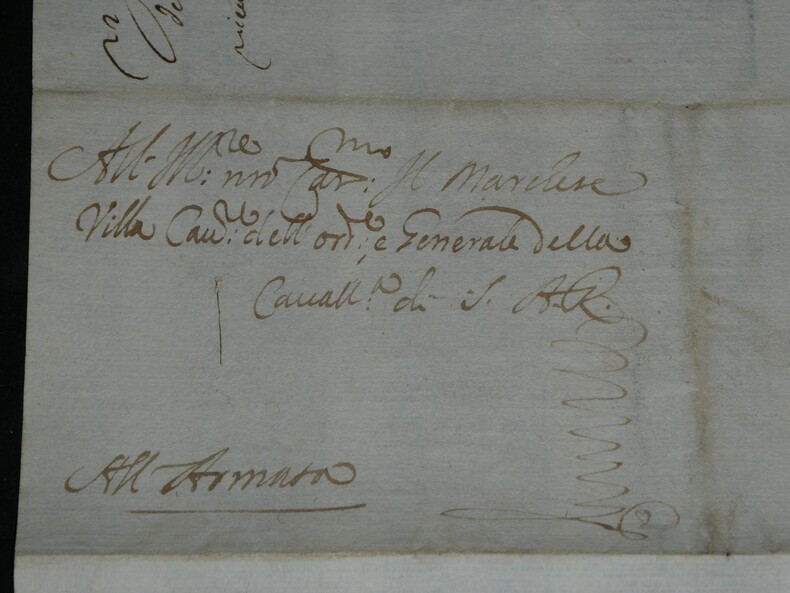 All Ill:re nro Car:mo Il Marchese
Villa Cau:re dell'ord:e e Generale della
Cauall:a di S. A. R.
All Armata